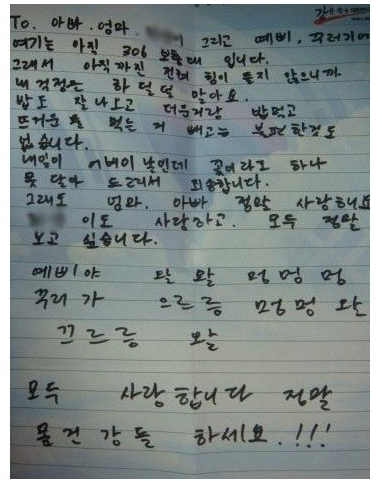 To. 아빠. 엄마. 그리고 예삐, 꾸러기에
여기는 아직 306 보충대 입니다.
그래서 아직까진 전혀 힘이 들지 않으니까
내 걱정은 하덜덜 말아요.
밥도 잘 나오고 더운거랑 밥먹고
뜨거운 물 먹는 거 빼고는 불편한것도
없습니다.
내일이 어버이 날인데 꽃이라도 하나
못 달아 드려서 죄송합니다.
그래도 엄마, 아빠 정말 사랑해요
이도 사랑하고. 모두 정말
보고 싶습니다.
예삐야 왈 왈 멍멍 멍
꾸러가 으르릉 멍멍 왈
끄르릉 왈
모두 사랑합니다 정말
몸건강들 하세요.!!!